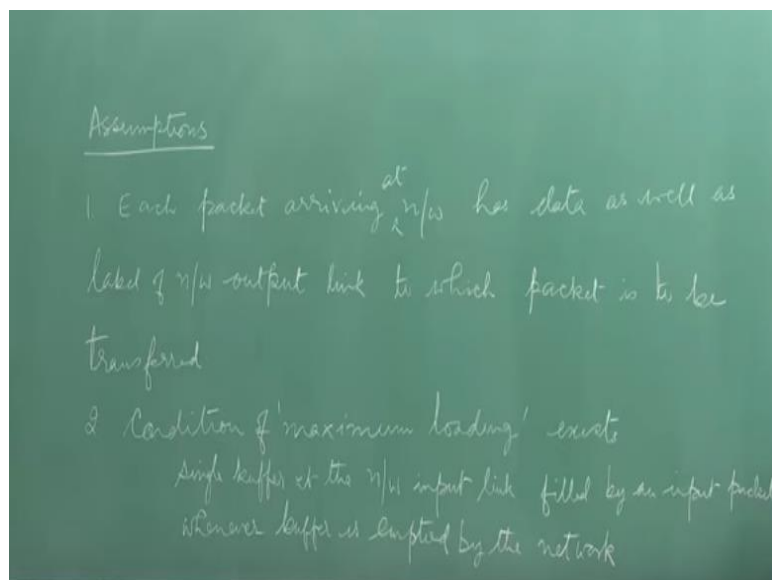 Assumptions
1 Each packet arriving at n/w has data as well as
label of n/w output link to which packet is to be
transferred
2 Condition of 'maximum loading' exists
single buffer at the n/w input link filled by an input packet
whenever buffer is emptied by the network